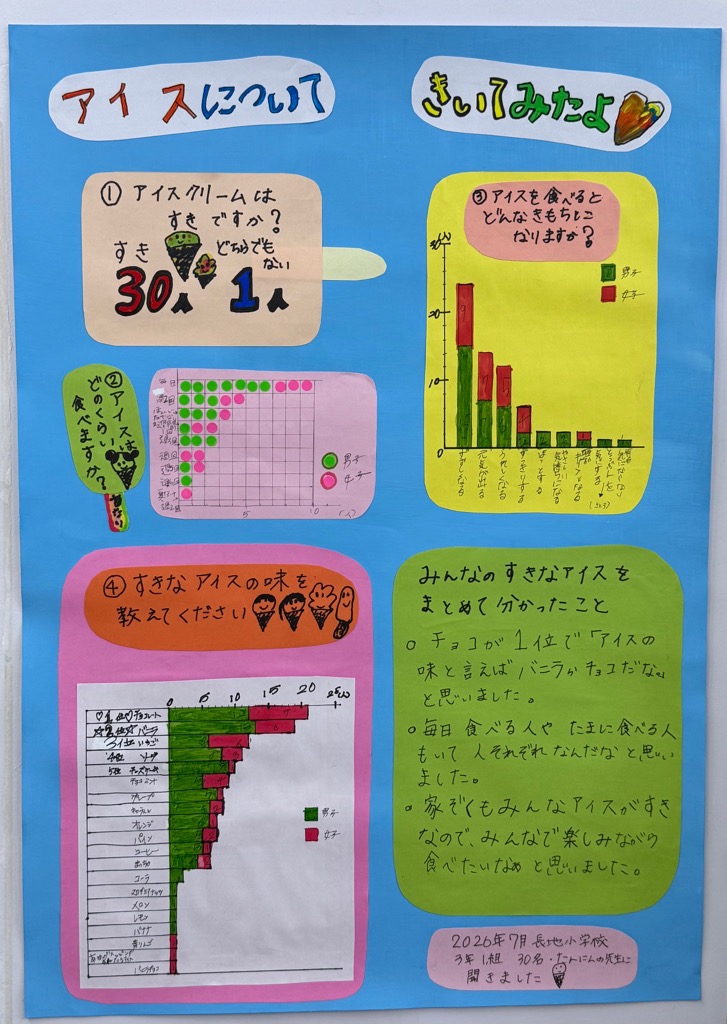 アイスについて
きいてみたよ
① アイスクリームは
すきですか?
すき
どちらでも
ない
30人
1人
② アイスは
どのくらい
食べますか?
毎日
男子
女子
5
10
(人)
③ アイスを食べると
どんなきもちに
なりますか?
30(人)
20
10
0
男子
女子
元気が出る
うれしくなる
すっきりする
ほっとする
④ すきなアイスの味を
教えてください
0 5 10 15 20 25(人)
1位 チョコレート
2位 バニラ
3位 いちご
4位 ソーダ
5位 チーズケーキ
チョコミント
グレープ
オレンジ
パイン
コーヒー
コーラ
メロン
レモン
バナナ
青りんご
男子
女子
みんなのすきなアイスを
まとめて分かったこと
○ チョコが1位で「アイスの
味と言えばバニラかチョコだな。」
と思いました。
○ 毎日食べる人やたまに食べる人
もいて人それぞれなんだなと思い
ました。
○ 家ぞくもみんなアイスがすき
なので、みんなで楽しみながら
食べたいなぁと思いました。
2026年7月 長地小学校
3年1組 30名・たんにんの先生に
聞きました